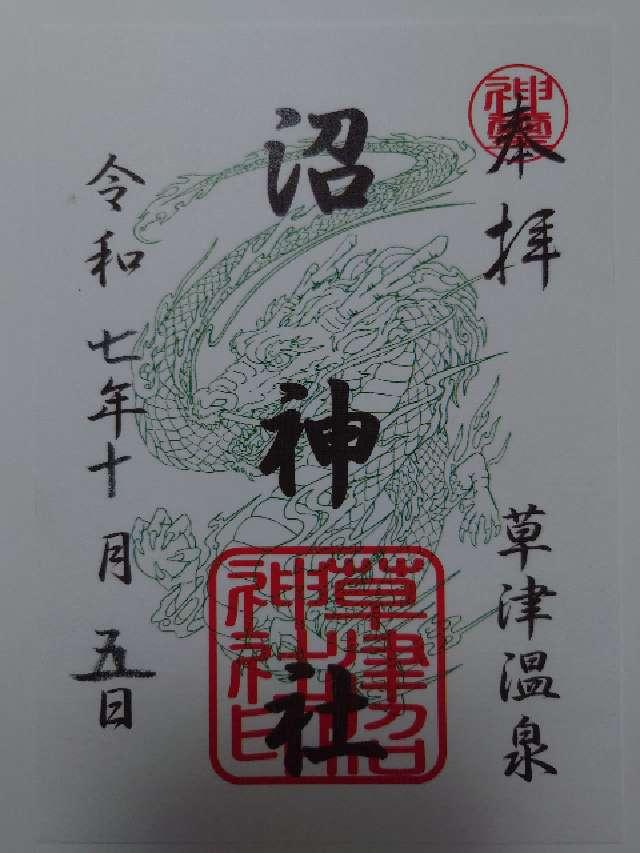 奉拝
草津温泉
沼神社
令和七年十月五日
草津沼
神社印